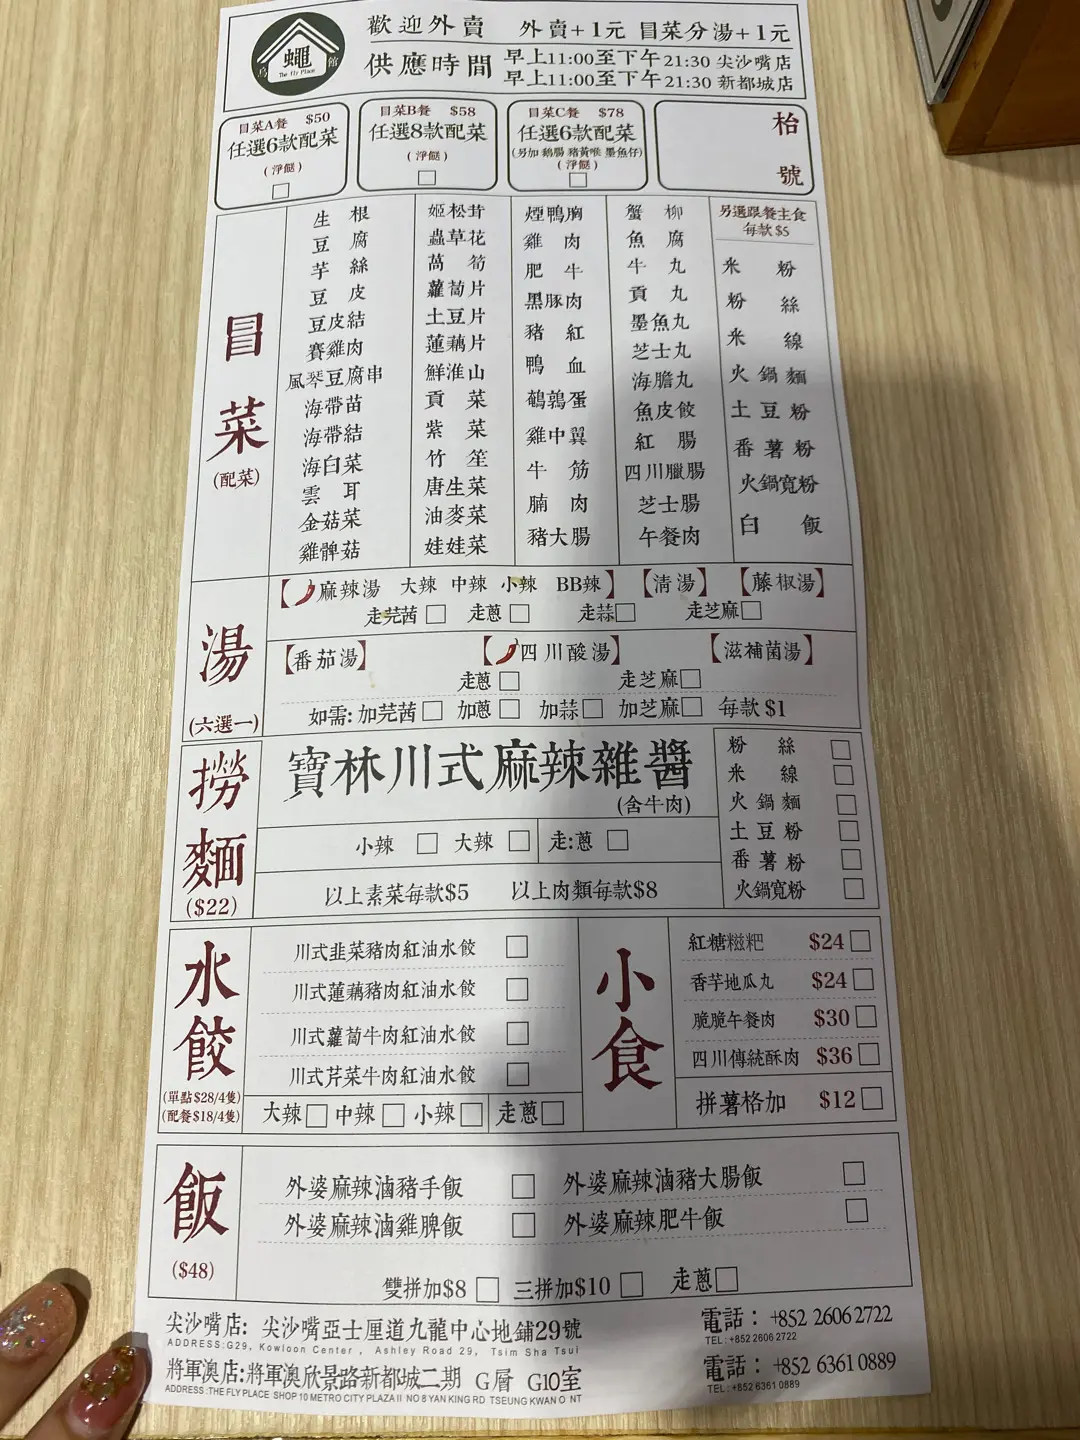 蠅
烏 館
The Fly Place
歡迎外賣 外賣+1元 冒菜分湯+1元
供應時間 早上11:00至下午21:30 尖沙嘴店
早上11:00至下午21:30 新都城店
冒菜A餐 $50
任選6款配菜
(淨餸)
冒菜B餐 $58
任選8款配菜
(淨餸)
冒菜C餐 $78
任選6款配菜
(另加 鵝腸 豬黃喉 墨魚仔)
(淨餸)
枱號
冒菜
(配菜)
生根
豆腐
芋絲
豆皮
豆皮結
賽雞肉
風琴豆腐串
海帶苗
海帶結
海白菜
雲耳
金菇菜
雞髀菇
姬松茸
蟲草花
萵筍
蘿蔔片
土豆片
蓮藕片
鮮淮山
貢菜
紫菜
竹笙
唐生菜
油麥菜
娃娃菜
煙鴨胸
雞肉
肥牛
黑豚肉
豬紅
鴨血
鵪鶉蛋
雞中翼
牛筋
腩肉
豬大腸
蟹柳
魚腐
牛丸
貢丸
墨魚丸
芝士丸
海膽丸
魚皮餃
紅腸
四川臘腸
芝士腸
午餐肉
另選跟餐主食
每款$5
米粉
粉絲
米線
火鍋麵
土豆粉
番薯粉
火鍋寬粉
白飯
湯
(六選一)
【麻辣湯 大辣 中辣 小辣 BB辣】【清湯】【藤椒湯】
走芫茜 走蔥 走蒜 走芝麻
【番茄湯】 【四川酸湯】 【滋補菌湯】
走蔥 走芝麻
如需: 加芫茜 加蔥 加蒜 加芝麻 每款 $1
撈麵
($22)
寶林川式麻辣雜醬
(含牛肉)
小辣 大辣 走:蔥
以上素菜每款$5 以上肉類每款$8
粉絲
米線
火鍋麵
土豆粉
番薯粉
火鍋寬粉
水餃
(單點$28/4隻)
(配餐$18/4隻)
川式韭菜豬肉紅油水餃
川式蓮藕豬肉紅油水餃
川式蘿蔔牛肉紅油水餃
川式芹菜牛肉紅油水餃
大辣 中辣 小辣 走蔥
小食
紅糖糍粑 $24
香芋地瓜丸 $24
脆脆午餐肉 $30
四川傳統酥肉 $36
拼薯格加 $12
飯
($48)
外婆麻辣滷豬手飯 外婆麻辣滷豬大腸飯
外婆麻辣滷雞脾飯 外婆麻辣肥牛飯
雙拼加$8 三拼加$10 走蔥
尖沙嘴店: 尖沙嘴亞士厘道九龍中心地鋪29號 電話：+852 2606 2722
ADDRESS:G29, Kowloon Center, Ashley Road 29, Tsim Sha Tsui TEL:+852 2606 2722
將軍澳店:將軍澳欣景路新都城二期 G層 G10室 電話：+852 6361 0889
ADDRESS:THE FLY PLACE SHOP 10 METRO CITY PLAZA II NO 8 YAN KING RD TSEUNG KWAN O NT TEL:+852 6361 0889